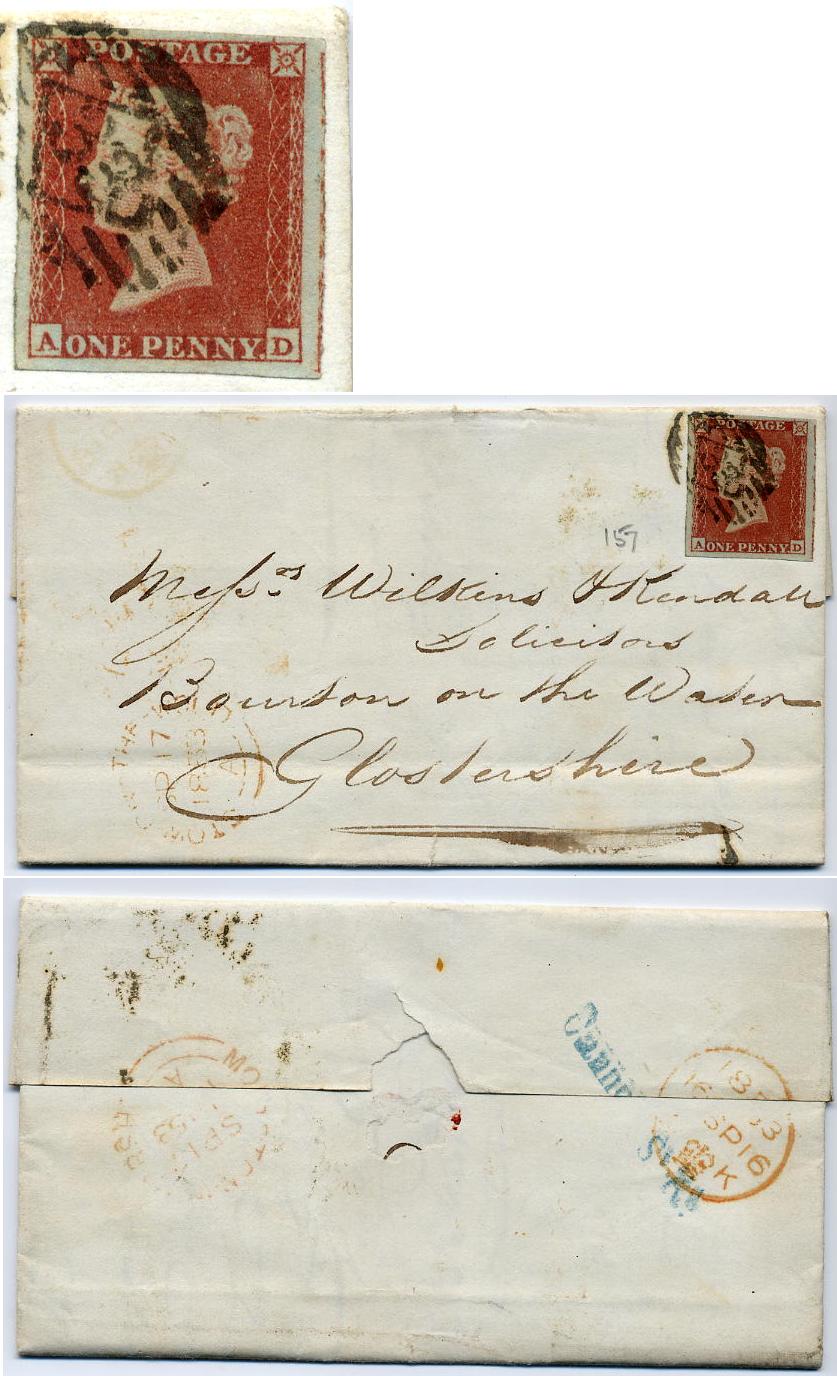 POSTAGE
A ONE PENNY. D
POSTAGE
A ONE PENNY. D
157
Messrs Wilkins & Kendall
Solicitors
Bourton on the Water
Glostershire
17
1853
A
1853
16 SP 16
K
SP 17
53
A